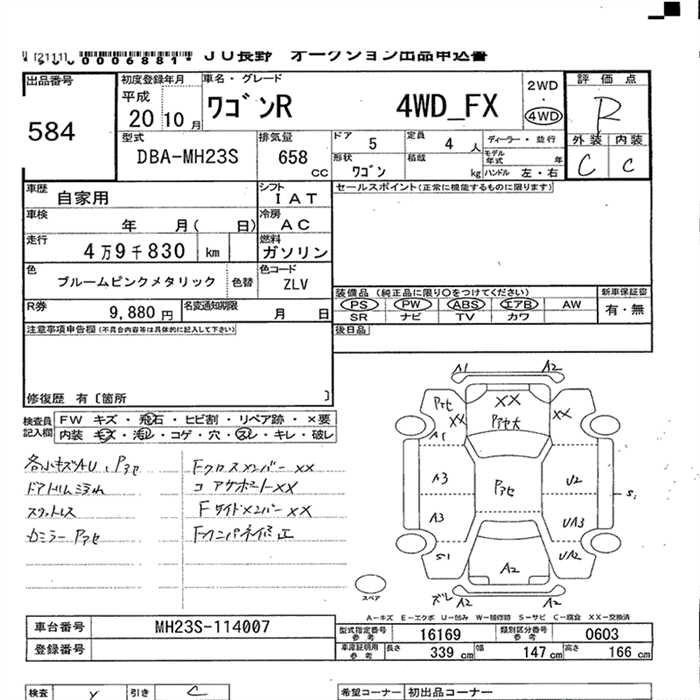 0006881 JU長野 オークション出品申込書
出品番号
584
初度登録年月
平成
20 10 月
車名・グレード
ワゴンR 4WD_FX
2WD
・
4WD
評価点
R
外装 内装
C C
型式
DBA-MH23S
排気量
658 cc
ドア 5 定員 4 人
形状 ワゴン 積載 kg
ディーラー・並行
モデル年式 年
ハンドル 左・右
車歴 自家用
シフト IAT
車検 年 月( 日)
冷房 AC
走行 4万9千830 km
燃料 ガソリン
色 ブルームピンクメタリック 色替
色コード ZLV
R券 9,880 円
名変通知期限 月 日
セールスポイント(正常に機能するものに限ります)
装備品 (純正品に限り○をつけてください)
PS PW ABS エアB AW
SR ナビ TV カワ
新車保証書
有・無
後日品
注意事項申告欄(不具合内容等は具体的に記入して下さい)
修復歴 有〔箇所 〕
検査員記入欄
FW キズ・飛石・ヒビ割・リペア跡・×要
内装 キズ・汚レ・コゲ・穴・スレ・キレ・破レ
各小キズAU、Pアセ
ドアトリム汚れ
カミラーPアセ
Fクロスメンバー XX
コアサポートXX
FサイドメンバーXX
Fインパネ修正
A1 A2
Pアセ XX XX XX
A1 Pアセ大
A3 Pアセ U2
S1
A3 UA3
S1 A2 UA2
ズレ A2 A2
スペア
A-キズ E-エクボ U-凹み W-補修跡 S-サビ C-腐食 XX-交換済
車台番号 MH23S-114007
登録番号
型式指定番号 参考 16169 類別区分番号 参考 0603
車庫証明用 参考 長さ 339 cm 幅 147 cm 高さ 166 cm
検査 Y 引き C
希望コーナー 初出品コーナー